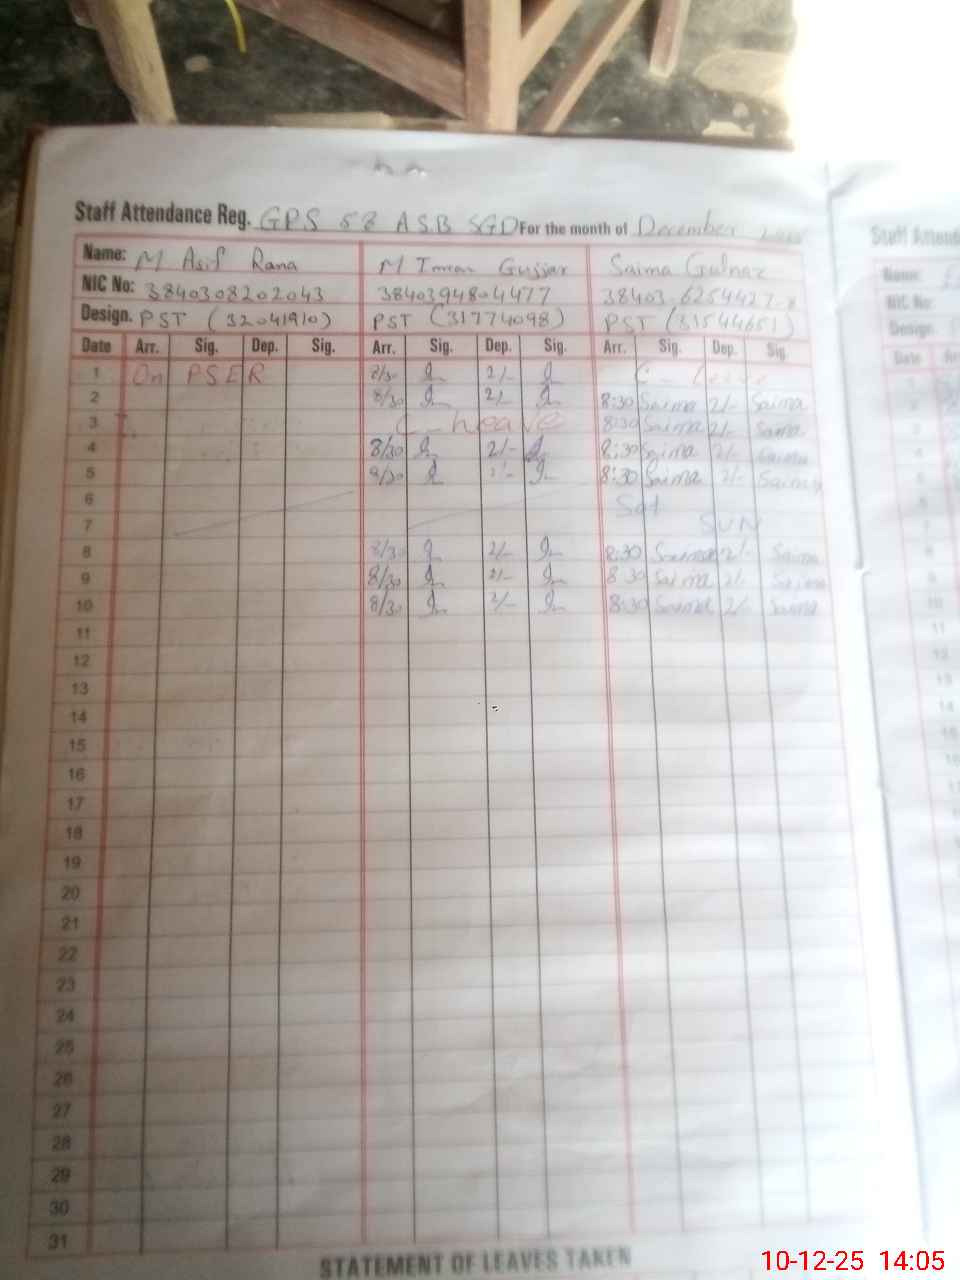 Staff Attendance Reg. GPS 58 ASB SGD For the month of December
Name: M Asif Rana M Imran Gujjar Saima Gulnaz
NIC No: 3840308202043 3840394804477 38403-6254427-8
Design. PST (32041910) PST (31774098) PST (31544651)
Date Arr. Sig. Dep. Sig. Arr. Sig. Dep. Sig. Arr. Sig. Dep. Sig.
1 On PSER 8/30 2/- C- Leave
2 8/30 2/- 8:30 Saima 2/- Saima
3 C-Leave 8:30 Saima 2/- Saima
4 8/30 2/- 8:30 Saima 2/- Saima
5 8/30 2/- 8:30 Saima 2/- Saima
6 Sat
7 SUN
8 8/30 2/- 8:30 Saima 2/- Saima
9 8/30 2/- 8 30 Saima 2/- Saima
10 8/30 2/- 8:30 Saima 2/- Saima
11
12
13
14
15
16
17
18
19
20
21
22
23
24
25
26
27
28
29
30
31
STATEMENT OF LEAVES TAKEN
Staff Attend
Name:
NIC No:
Design.
Date
10-12-25 14:05